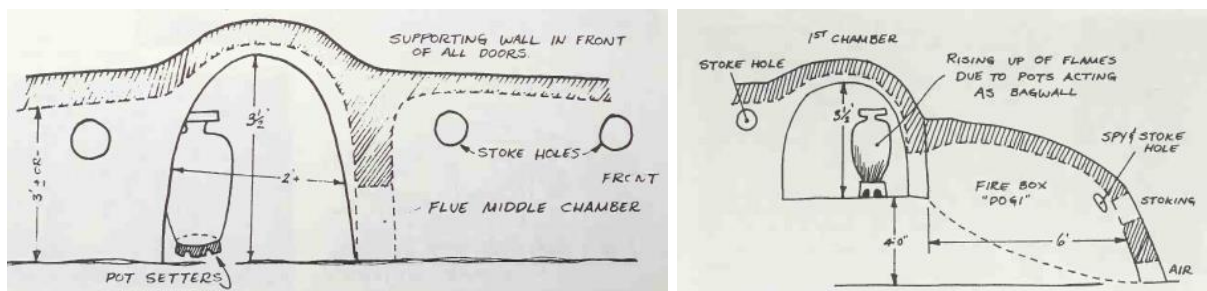 SUPPORTING WALL IN FRONT
OF ALL DOORS.
3' + OR -
3½'
2' +
STOKE HOLES
FRONT
FLUE MIDDLE CHAMBER
POT SETTERS
1ST CHAMBER
STOKE HOLE
RISING UP OF FLAMES
DUE TO POTS ACTING
AS BAGWALL
3½'
SPY & STOKE
HOLE
FIRE BOX
"DOGI"
STOKING
4'0"
6'
AIR